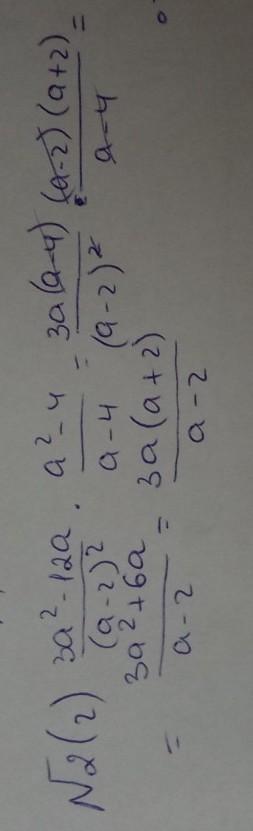 №2(2) (3a² - 12a)/(a-2)² · (a² - 4)/(a - 4) = (3a(a-4) (a-2)(a+2))/((a-2)² a-4) =
= (3a² + 6a)/(a - 2) = (3a(a+2))/(a - 2)